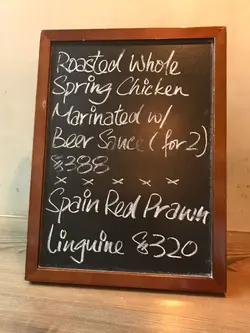 Roasted Whole
Spring Chicken
Marinated w/
Beer Sauce (for 2)
$388
x x x x x
Spain Red Prawn
linguine $320